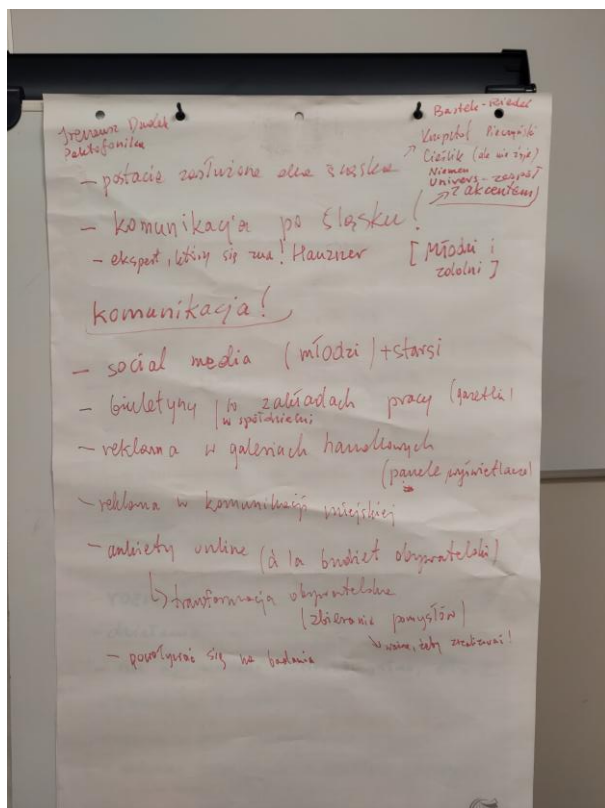 Ireneusz Dudek
Paktofonika
Bastek-Riedel
Krzysztof Pieczyński
Cieślik (ale nie żyje)
Niemen
Univers - zespół
z akcentem)
- postacie zasłużone dla Śląska
- komunikacja po śląsku!
- ekspert, który się zna! Hauzner
[Młodzi i
zdolni]
komunikacja!
- social media (młodzi) + starsi
- biuletyny w zakładach pracy (gazetki)
w spółdzielni
- reklama w galeriach handlowych
(panele, wyświetlacze)
- reklama w komunikacji miejskiej
- ankiety online (à la budżet obywatelski)
transformacja obywatelska
(zbieranie pomysłów)
ważne, żeby zrealizować!
- powoływać się na badania